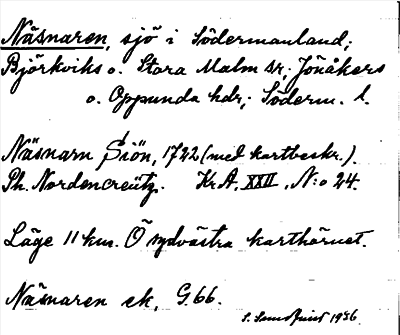 Näsnaren, sjö i Södermanland;
Björkviks o. Stora Malm sr; Jönåkers
o. Oppunda hdr; Söderm. l.
Näsnarn Siön, 1722 (med kartbeskr.).
Ph. Nordencreütz. KrA, XXII, N:o 24.
Läge 11 km. Ö sydvästra karthörnet.
Näsnaren ek, G.66.
S. 1936.